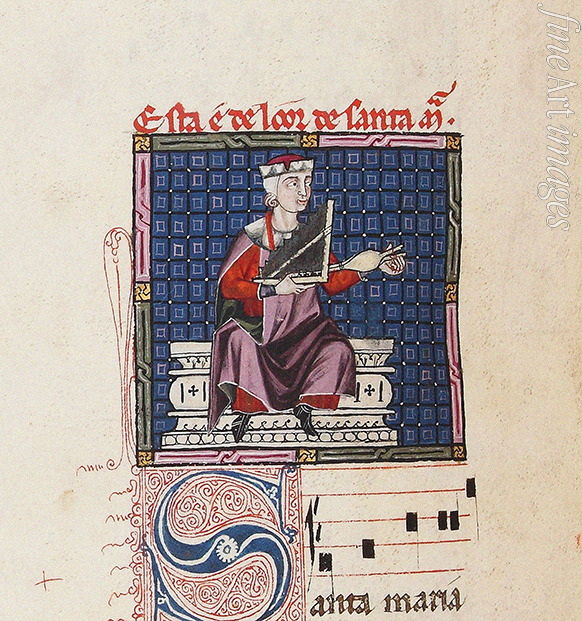 Esta é de loor de santa mã.
Santa maria
fine art images